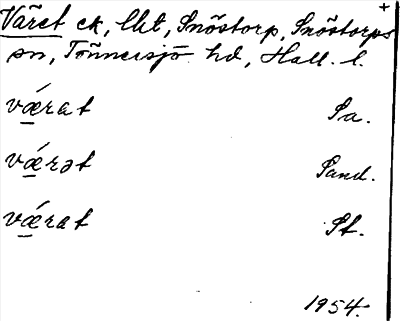 +
Väret ek, lht, Snöstorp, Snöstorps
sn, Tönnersjö hd, Hall. l.
vǽ̲rat Sa.
vǽ̲rət Sand.
vǽ̲rat St.
1954.